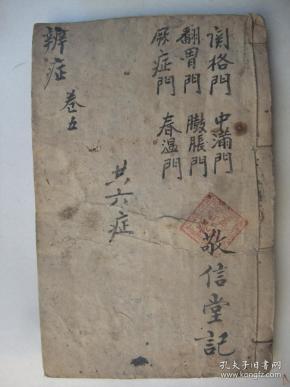 関格門　中滿門
翻胃門　臌脹門
厥症門　春温門
共六症
敬信堂記
辨症
卷五
孔夫子旧书网